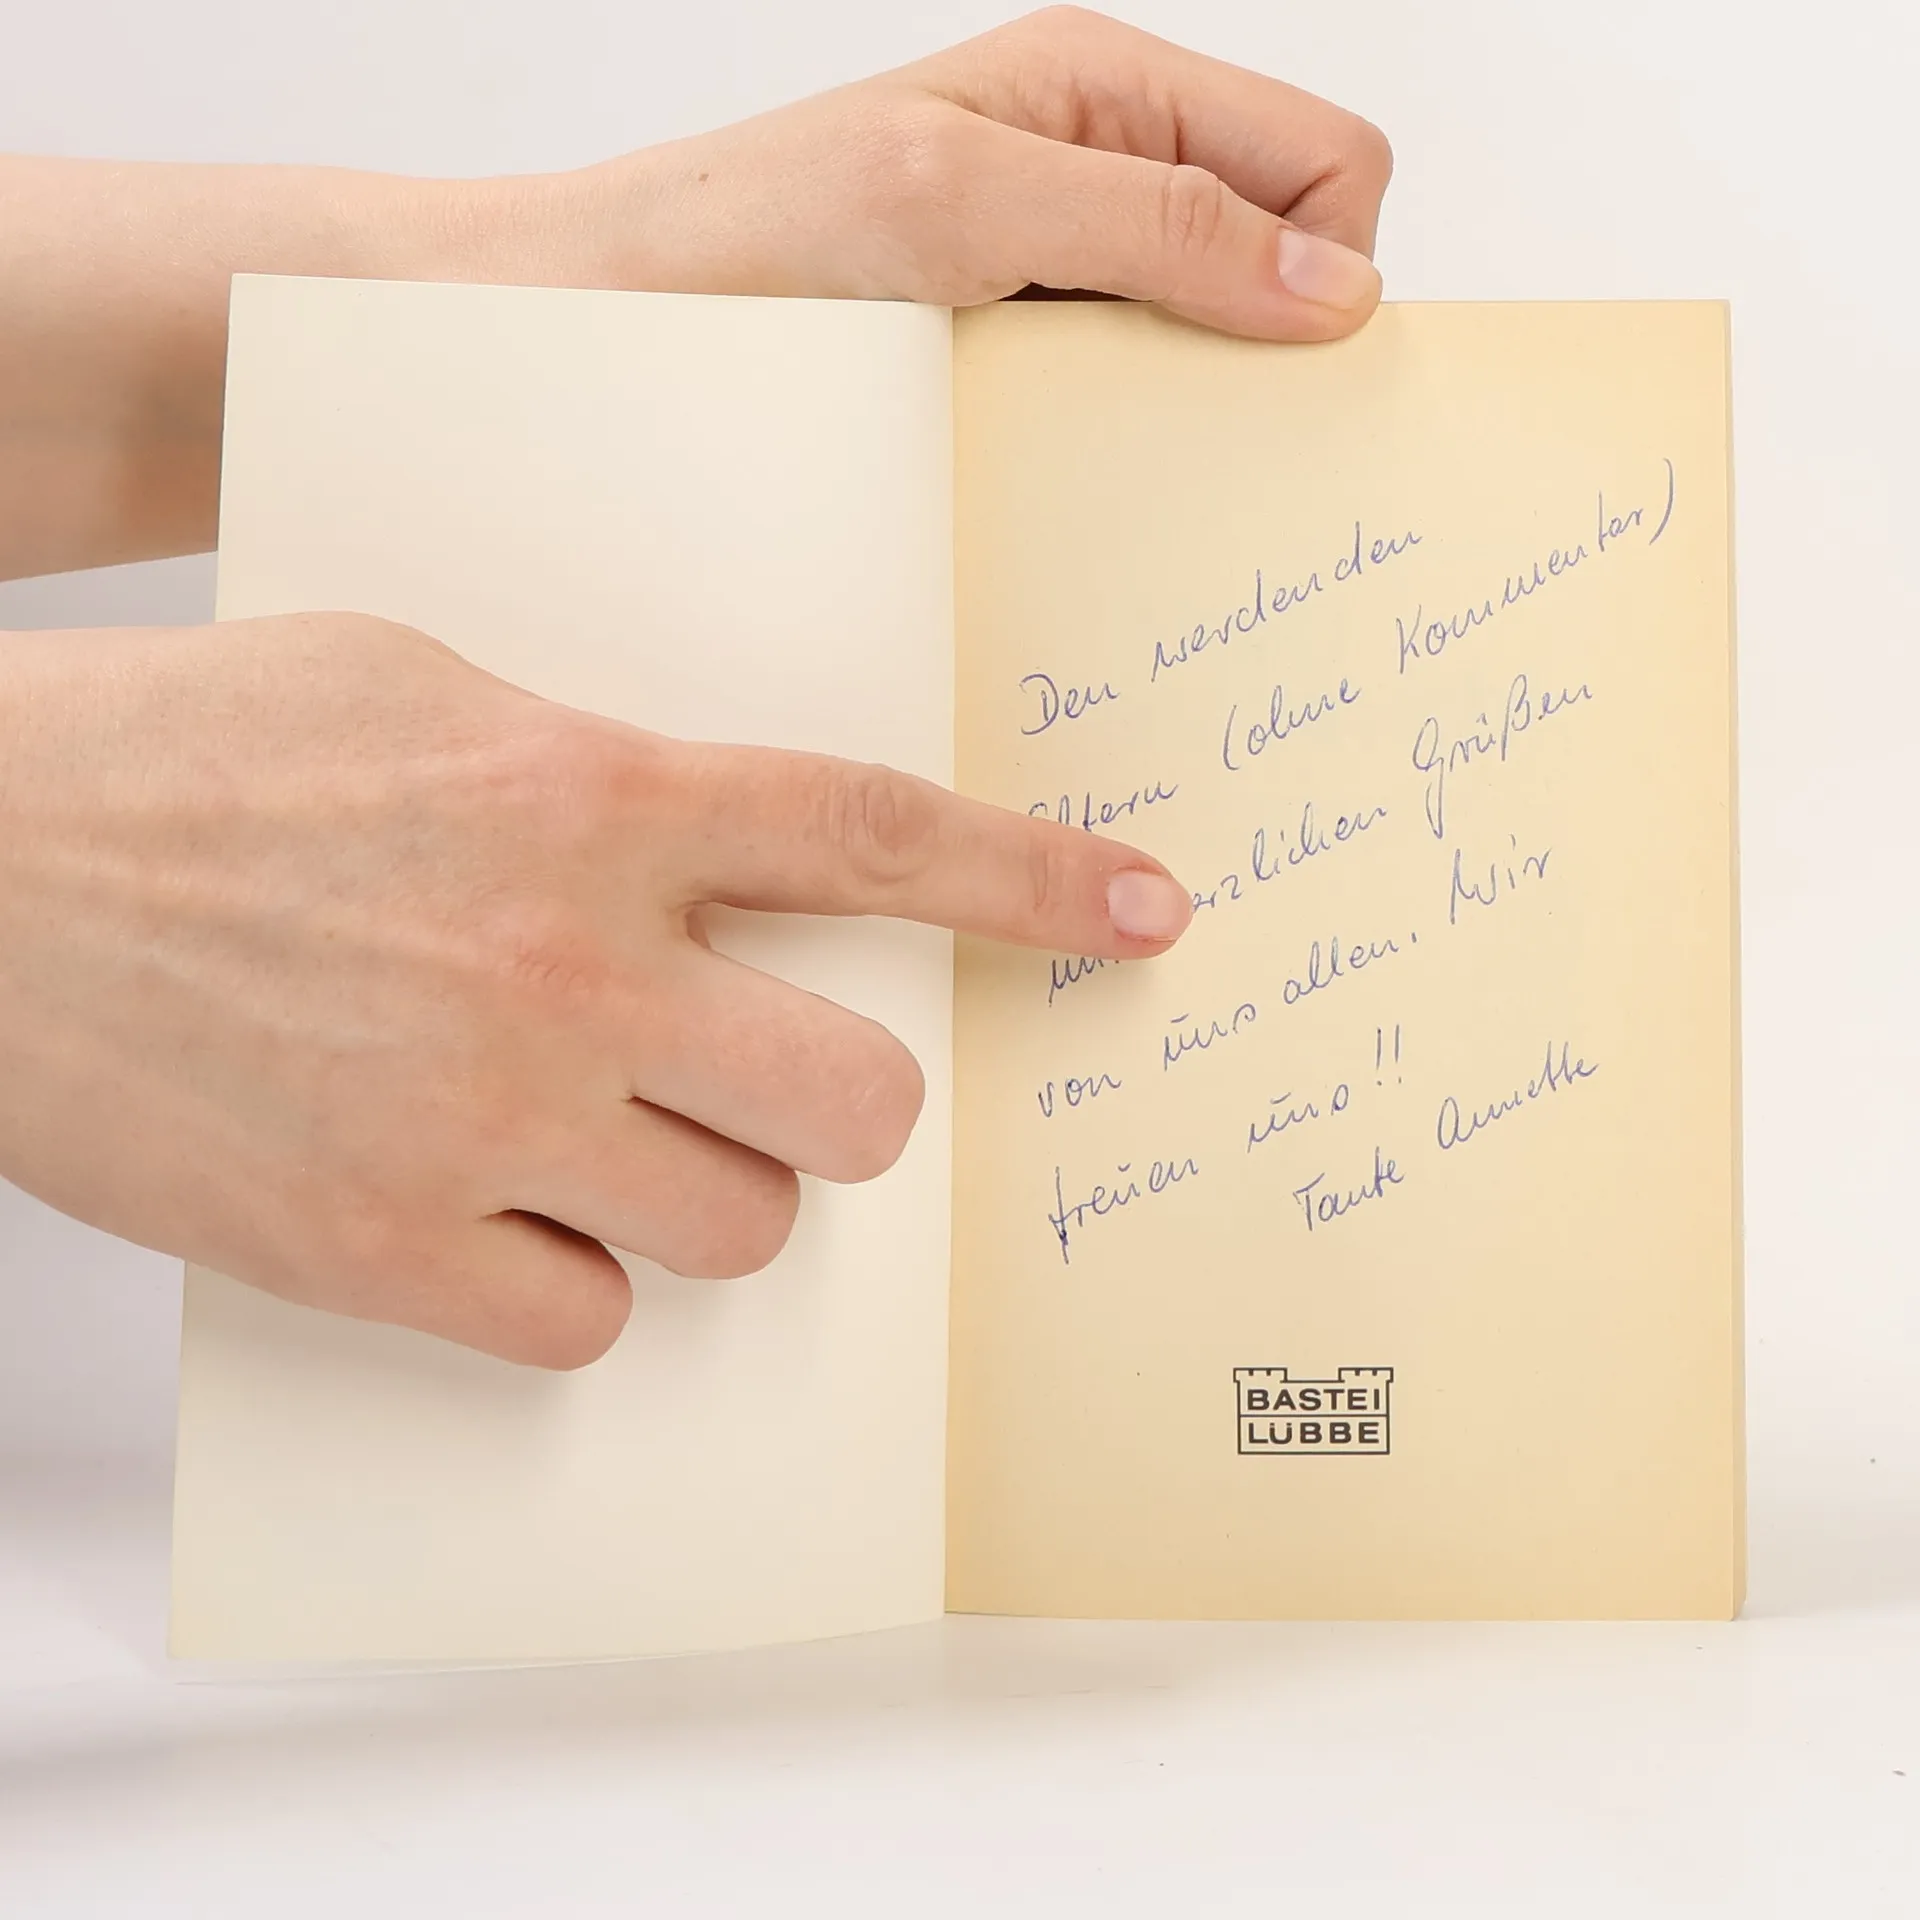 Den werdenden
Eltern (ohne Kommentar)
mit herzlichen Grüßen
von uns allen. Wir
freuen uns!!
Tante Annette
BASTEI
LÜBBE